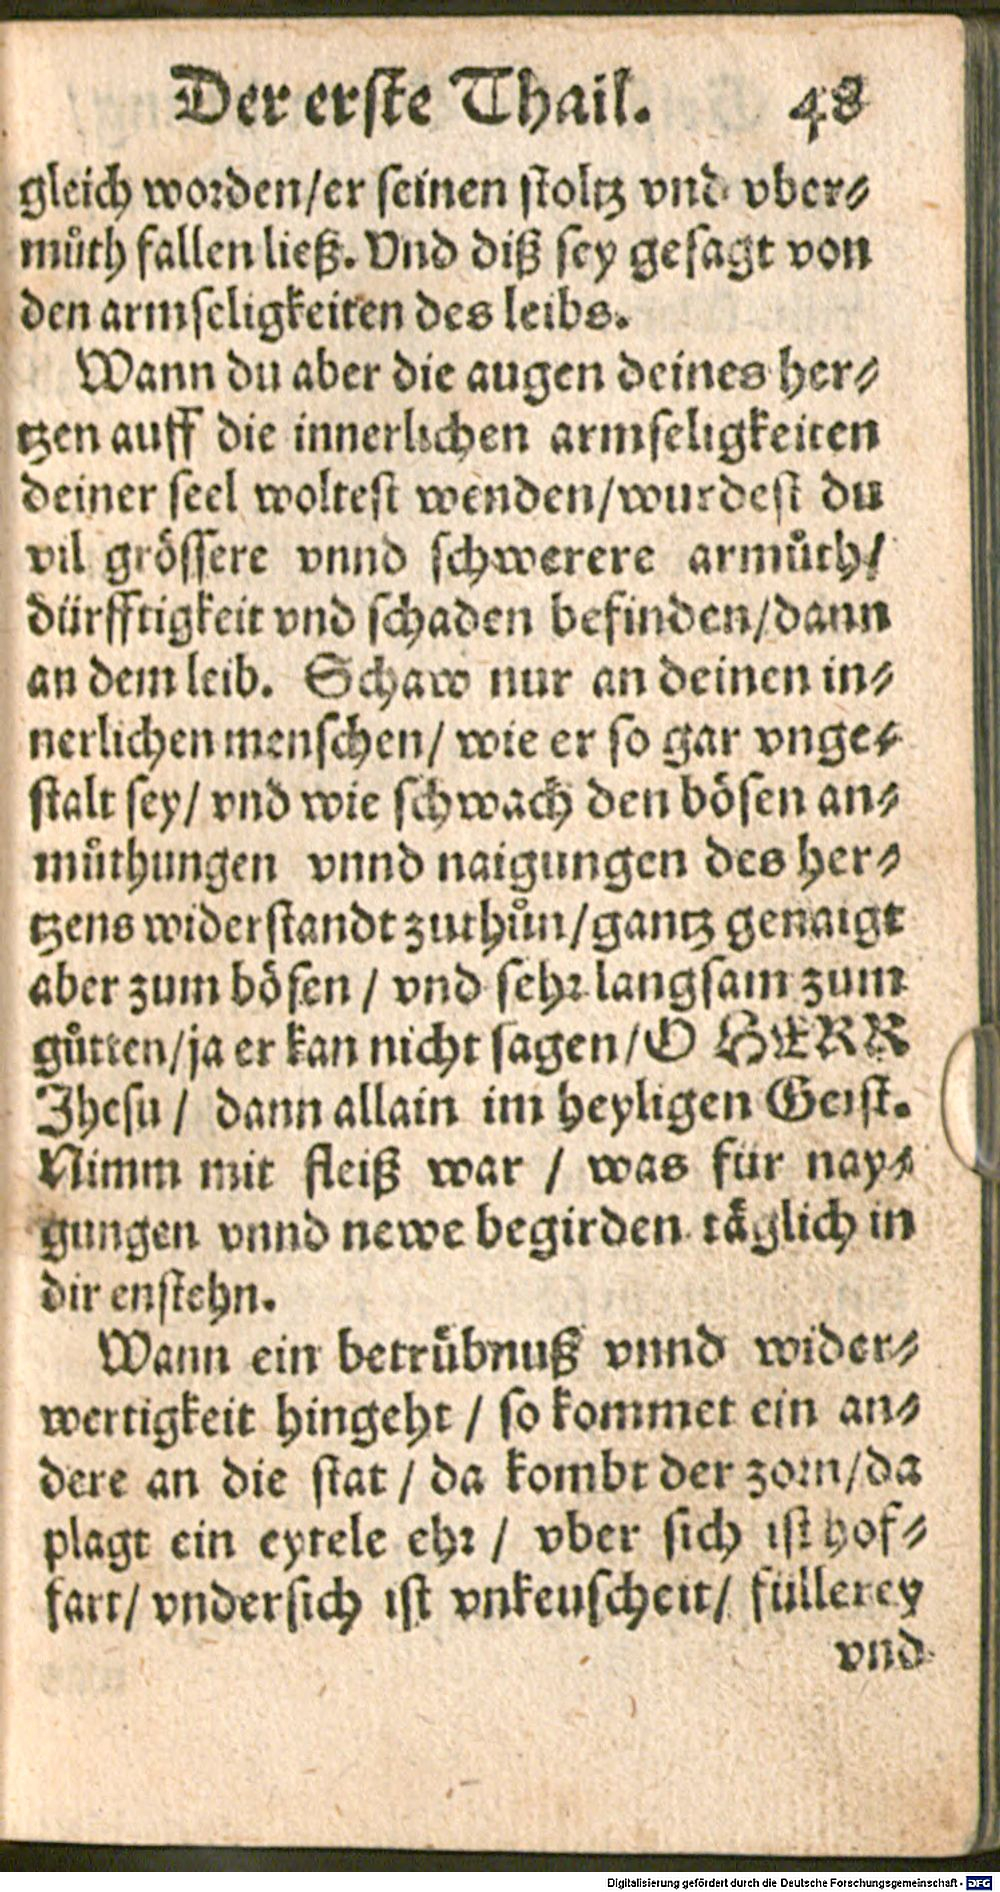 Der erste Thail. 48
gleich worden/er seinen stoltz vnd vber⸗
muͤth fallen ließ. Vnd diß sey gesagt von
den armseligkeiten des leibs.
Wann du aber die augen deines her⸗
tzen auff die innerlichen armseligkeiten
deiner seel woltest wenden/wurdest du
vil grössere vnnd schwerere armuͤth/
dürfftigkeit vnd schaden befinden/dann
an dem leib. Schaw nur an deinen in⸗
nerlichen menschen/ wie er so gar vnge⸗
stalt sey/ vnd wie schwach den bösen an⸗
muͤthungen vnnd naigungen des her⸗
tzens widerstandt zuthuͦn/gantz genaigt
aber zum bösen / vnd sehr langsam zum
guͦtten/ja er kan nicht sagen/O HERR
Jhesu / dann allain im heyligen Geist.
Nimm mit fleiß war / was für nay⸗
gungen vnnd newe begirden täglich in
dir enstehn.
Wann ein betruͤbnuß vnnd wider⸗
wertigkeit hingeht / so kommet ein an⸗
dere an die stat / da kombt der zorn/da
plagt ein eytele ehr / vber sich ist hof⸗
fart/ vndersich ist vnkeuscheit/ füllerey
vnd
Digitalisierung gefördert durch die Deutsche Forschungsgemeinschaft - DFG